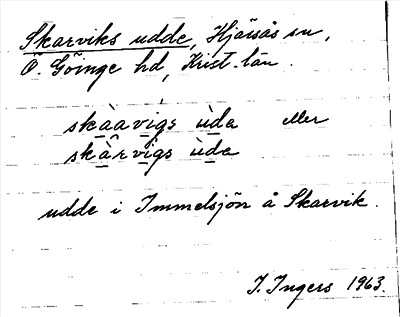 Skarviks udde, Hjärsås sn,
Ö. Göinge hd, Krist. län.
skàavígs ùda eller
skàrvígs ùda
udde i Immelsjön å Skarvik.
I. Ingers 1963.